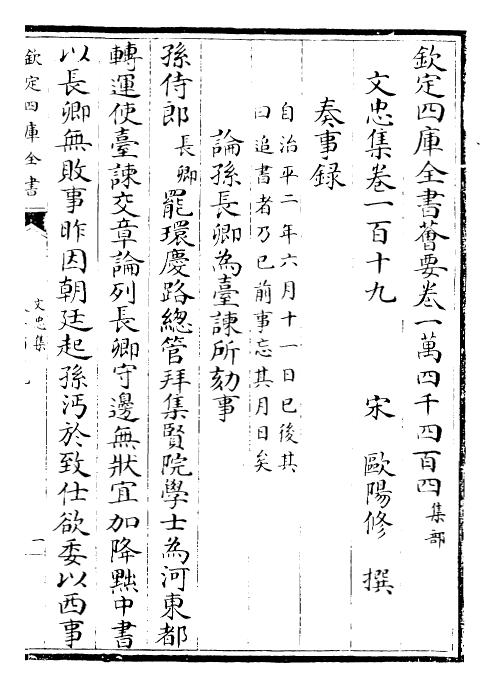 欽定四庫全書薈要卷一萬四千四百四集部
文忠集卷一百十九 宋 歐陽修 撰
奏事録
自治平二年六月十一日已後其
曰追書者乃已前事忘其月日矣
論孫長卿為臺諫所劾事
孫侍郎長卿罷環慶路總管拜集賢院學士為河東都
轉運使臺諫交章論列長卿守邊無狀宜加降黜中書
以長卿無敗事昨因朝廷起孫沔於致仕欲委以西事
欽定四庫全書
文忠集
一